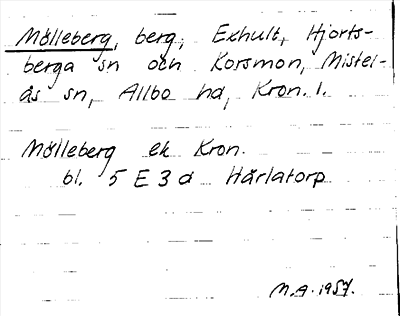 Mölleberg, berg, Exhult, Hjorts-
berga sn och Korsmon, Mistel-
ås sn, Allbo hd, Kron. l.
Mölleberg ek Kron.
bl. 5 E 3 d Härlatorp
M.A. 1957.